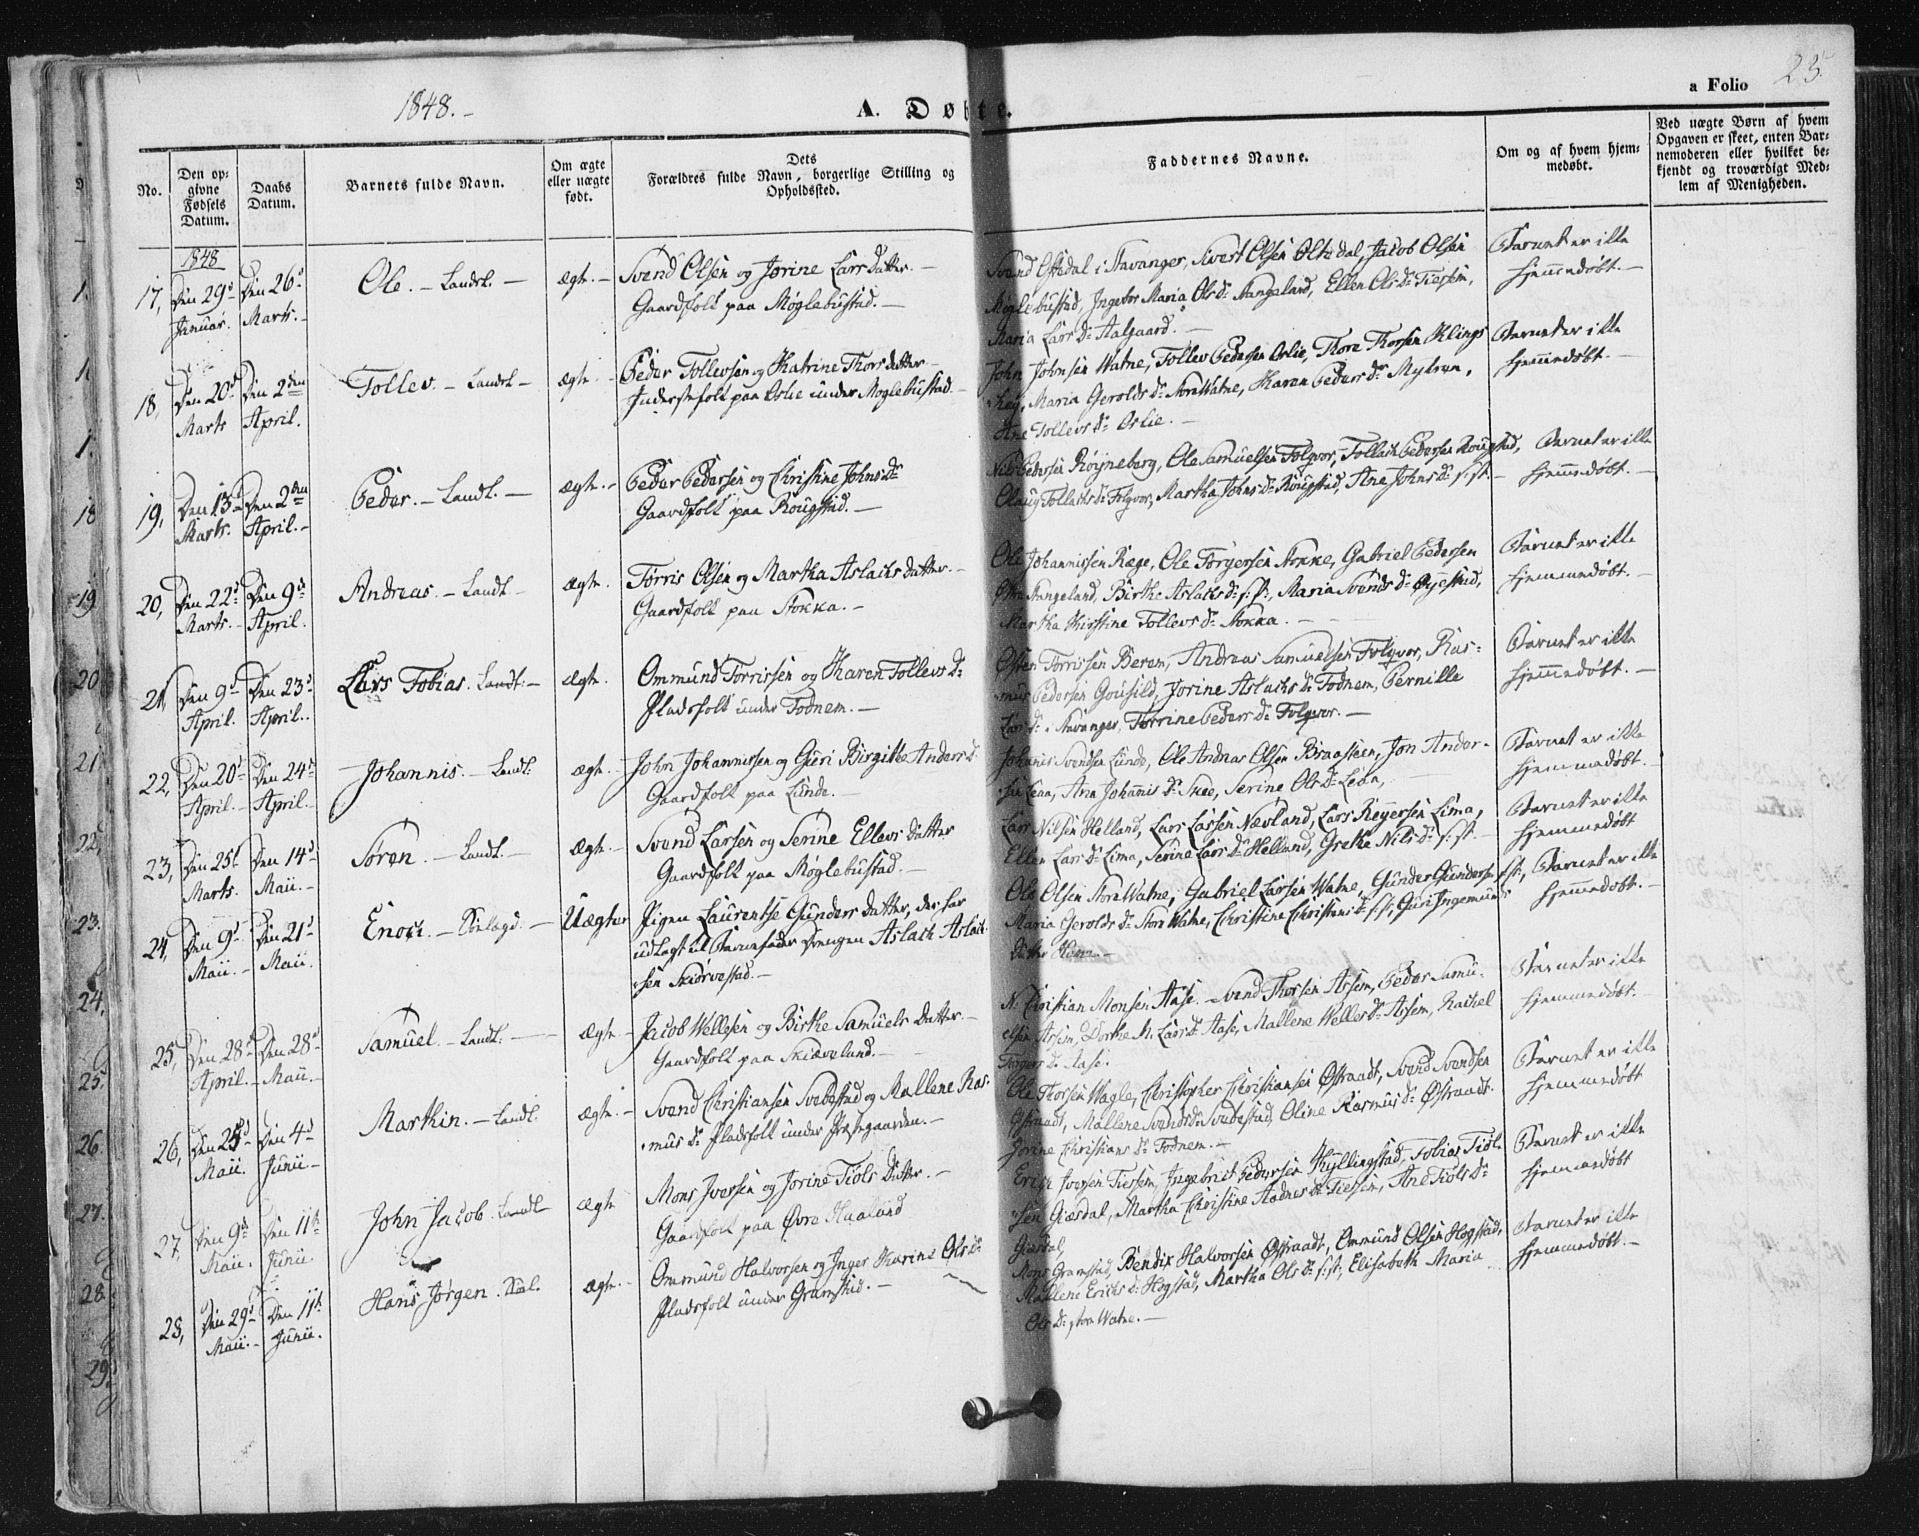 1848.-
A. Døbte.
a Folio 25.
No.
Den opgivne Fødsels Datum.
Daabs Datum.
Barnets fulde Navn.
Om ægte eller uægte født.
Dets Forældres fulde Navn, borgerlige Stilling og Opholdssted.
Faddernes Navne.
Om og af hvem hjemmedøbt.
Ved uægte Børn af hvem Opgaven er skeet, enten Barnemoderen eller hvilket bekjendt og troværdigt Medlem af Menigheden.
1848
17, Den 29d Januar. Den 26d Marts.- Ole. - Landl. - ægte.-
Svend Olsen og Jorine Larsdatter.-
Gaardfolk paa Møglebustad.-
Svend Oftedal i Stavanger, Sivert Olsen Oltedal, Jacob Olsen
Møglebustad, Ingebor Maria Olsdr Stangeland, Ellen Olsdr Tiessem,
Maria Larsdr Aalgaard.-
Barnet er ikke
hjemmedøbt.-
18, Den 20d Marts Den 2den April. Tollev. - Landl. - ægte.-
Peder Tollevsen og Katrine Thorsdatter-
Inderstefolk paa Oslie under Møglebustad-
John Johnsen Watne, Tollev Pedersen Oslie, Thore Thorsen Klings
Maria Geroldsdr StoreWatne, Karen Pedersdr Myhren,
Ane Tollevsdr Oslie.-
Barnet er ikke
hjemmedøbt.-
19, Den 13d Marts. Den 2den April.- Peder. - Landl. - ægte.-
Peder Pedersen og Christine Johnsdr
Gaardfolk paa Rougstad.-
Nils Pedersen Røyneberg, Ole Samuelsen Folqvor, Tollack Pedersen Rougstad,
Olaug Tollaksdr Folqvor, Martha Johnsdr Rougstad, Ane Johnsdr s: st:-
Barnet er ikke
hjemmedøbt.-
20, Den 22d Marts.- Den 9d April. Andreas. - Landl. - ægte.
Tørris Olsen og Martha Aslacksdatter.-
Gaardfolk paa Stokka.-
Ole Johannissen Ræge, Ole Torgersen Stokke, Gabriel Pedersen
Stangeland, Birthe Aslaksdr s: st:, Maria Svendsdr Øyestad,
Martha Kirstine Tollevsdr Stokka.-
Barnet er ikke
hjemmedøbt.-
21, Den 9d April. Den 23d April. Lars Tobias. Landl.- ægte.
Ommund Torrissen og Karen Tollevsdr
Pladsfolk under Todnem.-
Osten Torrissen Berem, Andreas Samuelsen Folqvor, Ras-
mus Pedersen Gousild, Jorine Aslacksdr Todnem, Pernille
Larsdr i Stavanger, Torrine Pedersdr Folqvor.-
Barnet er ikke
hjemmedøbt.-
22, Den 20d April.- Den 24d April. Johannis. - Landl. ægte.-
John Johannissen og Guri Birgitte Andersdr
Gaardfolk paa Lunde.-
Johanis Svendsen Lunde, Ole Andreas Olsen Braasteen, Jon Ander-
sen Leaa, Ana Johannisdr Skee, Serine Olsdr Leaa,
Barnet er ikke
hjemmedøbt.-
23, Den 25d Marts. Den 14d Maii.- Søren. - Landl.- ægte.-
Svend Larsen og Serine Ellevsdatter
Gaardfolk paa Møglebustad.-
Lars Nilsen Helland, Lars Larsen Nævland, Lars Reyersen Lima,
Ellen Larsdr Lima, Serine Larsdr Helland, Grethe Nilsdr s: st:-
Barnet er ikke
hjemmedøbt
24, Den 9d Maii.- Den 21d Maii. Enoch. - Sølagd. - Uægte
Pigen Laurentse Gundersdatter, der har
udlagt til Barnefader Drengen Aslach Aslach-
sen Skiørvestad.-
Ole Olsen StoreWatne, Gabriel Larsen Watne, Gunder Gundersen s: st:,
Maria Geroldsdr StoreWatne, Christine Christensdr s: st:, Guri Ingemunds
datter Hana.-
Barnet er ikke
hjemmedøbt.-
25, Den 28d April.- Den 28d Maii.- Samuel. - Landl.- ægte.-
Jacob Wellesen og Birthe Samuelsdatter-
Gaardfolk paa Skiæveland.-
N. Christian Monsen Aase.- Svend Thorsen Arsem, Peder Samu-
elsen Arsem, Dorthe M. Larsdr Aase, Mallene Wellesdr Arsem, Rachel
Torgersdr Aase.
Barnet er ikke
hjemmedøbt.-
26, Den 25d Maii. Den 4d Junii- Marthin. - Landl. ægte.-
Svend Christiansen Svebestad og Mallene Ras-
musdr Pladsfolk under Præstgaarden.-
Ole Thorsen Wagle, Christopher Christiansen Østraadt, Svend Svendsen
Østraadt, Mallene Svendsdr Svebestad, Oline Rasmusdr Østraadt.
Jorine Christiansdr Todnem.-
Barnet er ikke
hjemmedøbt
27, Den 9d Maii. Den 11te Junii John Jacob. Landl. ægte
Mons Iversen og Jorine Tiølsdatter.-
Gaardfolk paa Øvre Haaland
Erick Iversen Tiessem, Ingebret Pedersen Kyllingstad, Tobias Tiøl-
sen Giæsdal, Martha Christine Aadnesdr Tiessem, Ane Tiølsdr
Giesdal,
Barnet er ikke
hjemmedøbt
28, Den 29d Maii.- Den 11te Junii. Hans Jørgen. Søl. ægte.-
Ommund Halvorsen og Inger Karine Olsdr
Pladsfolk under Gramstad.-
Mons Gramstad, Bendix Halvorsen Østraadt, Ommund Olsen Hogstad,
Mallene Ericksdr Hogstad, Martha Olsdr s: st:, Elisabeth Maria
Olsdr store Watne.-
Barnet er ikke
hjemmedøbt.-